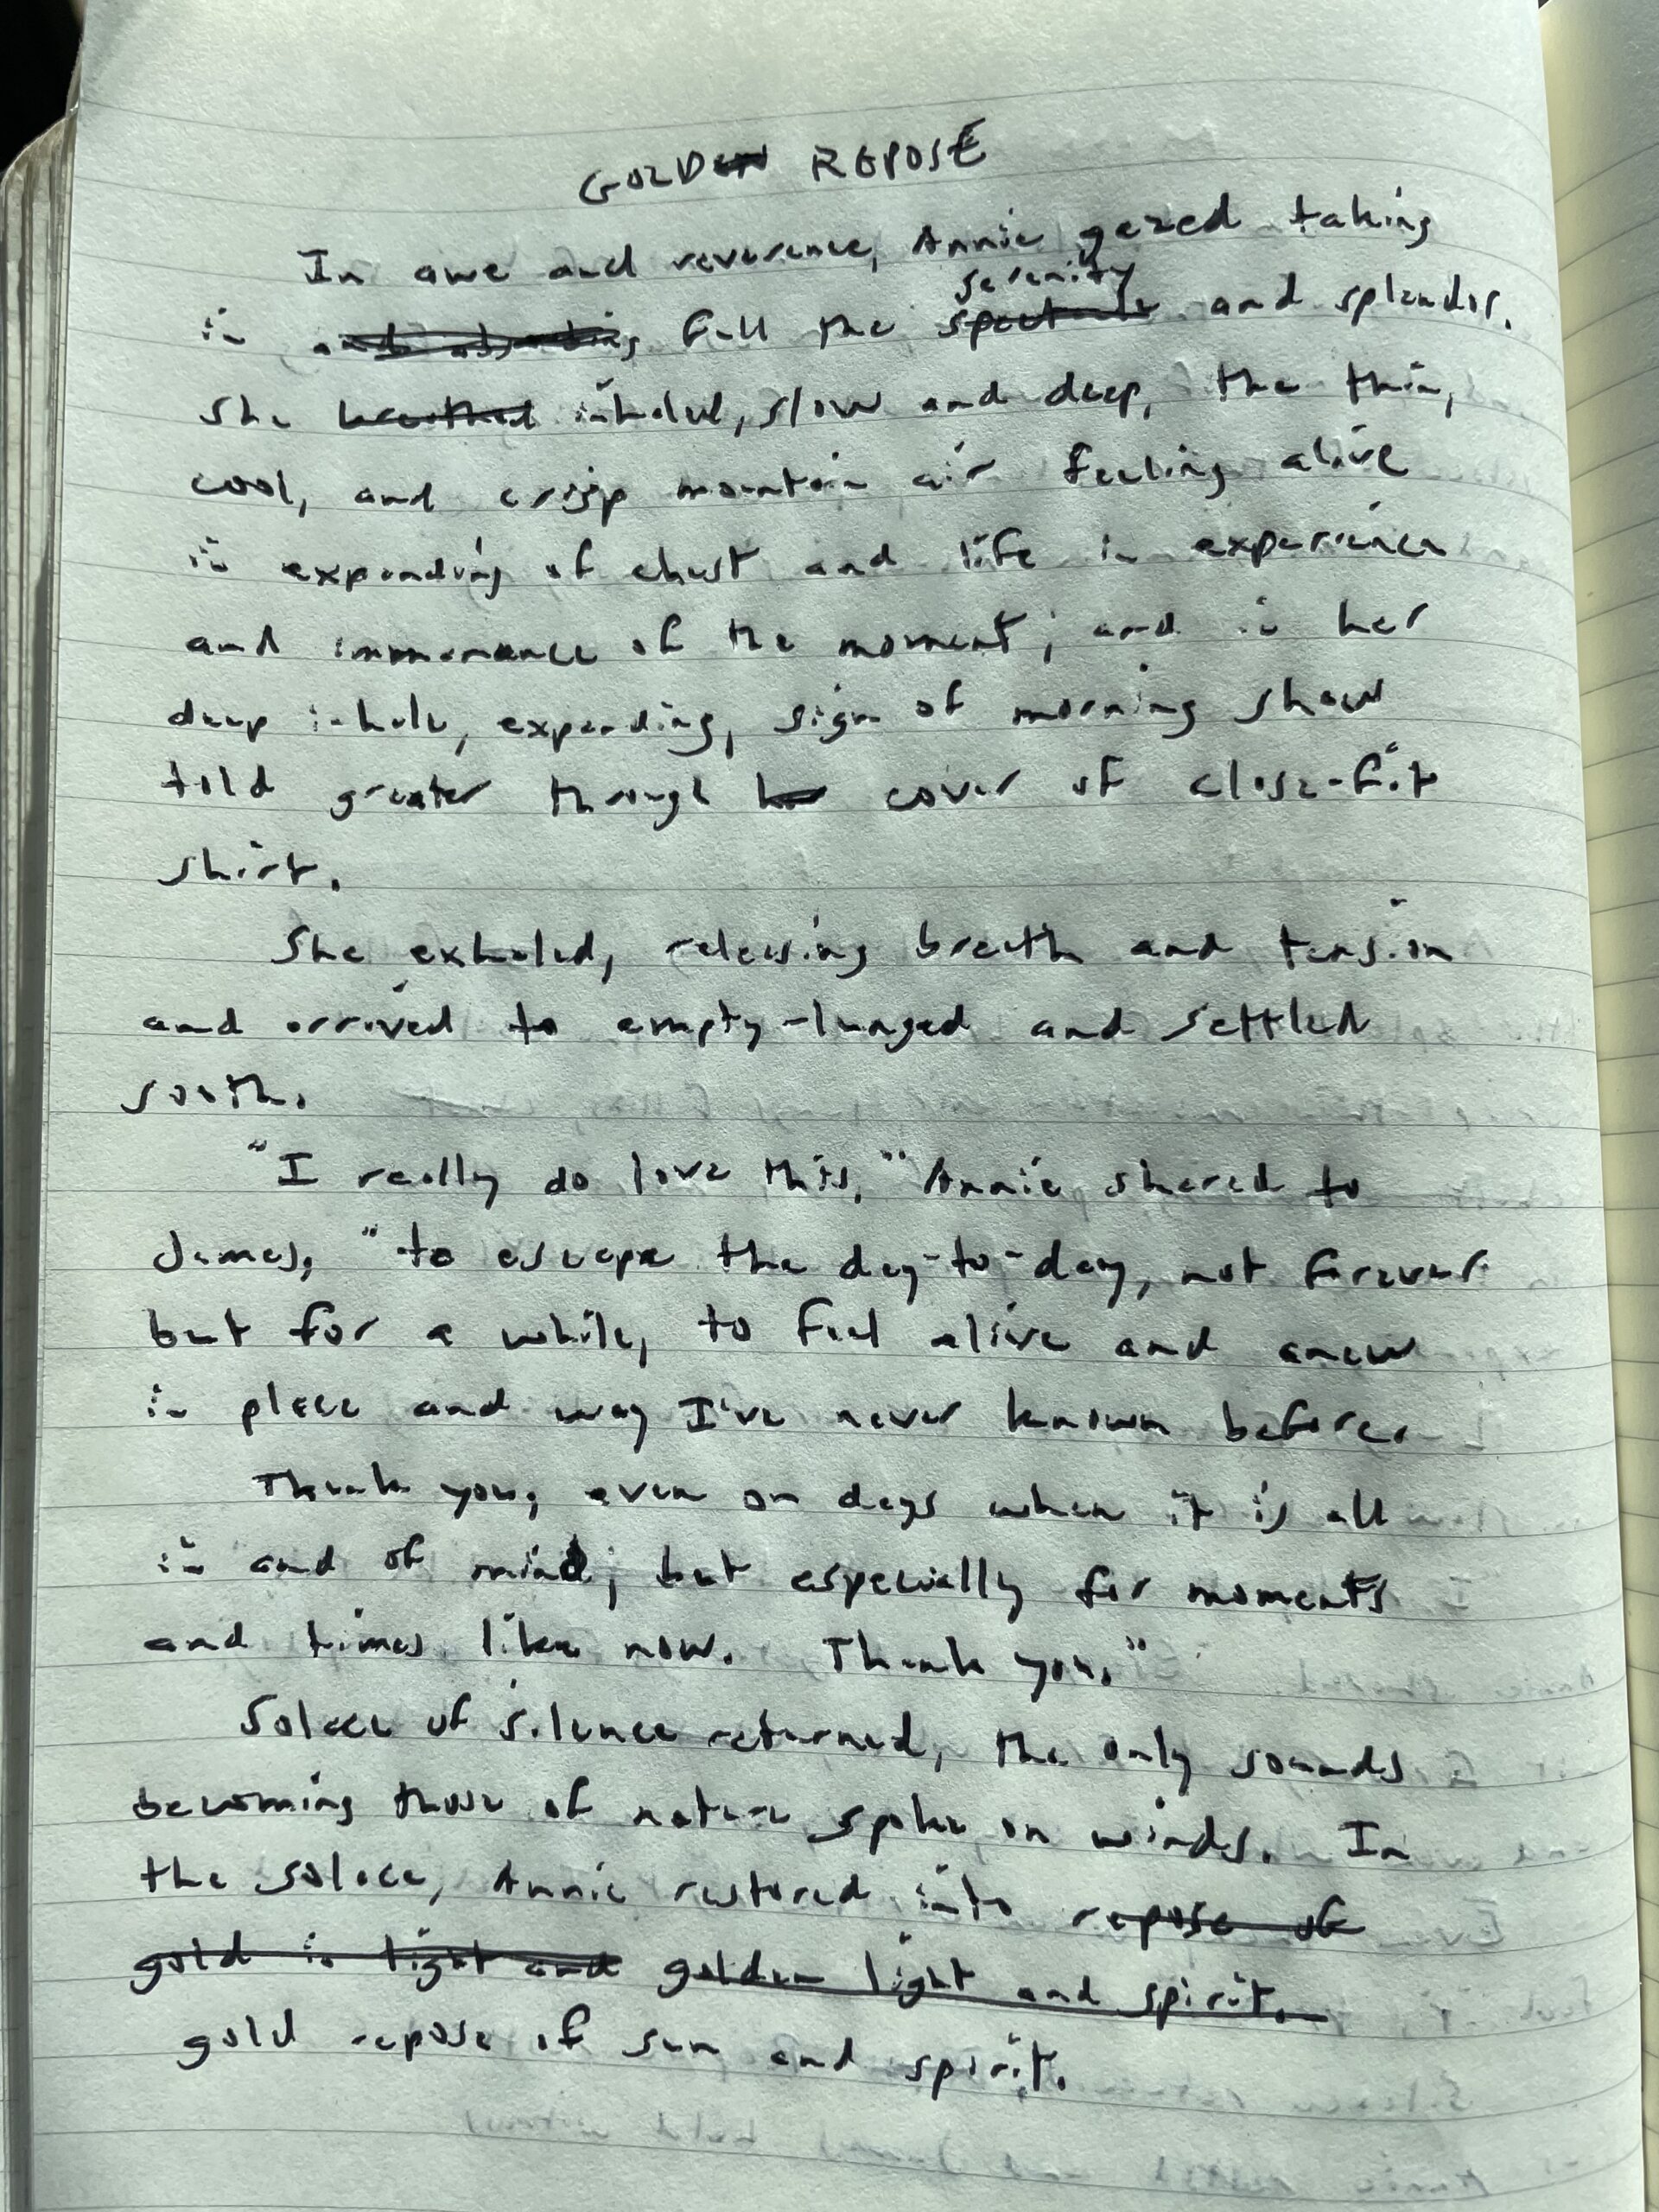 GOLD REPOSE
In awe and reverence, Annie gazed taking
in full the serenity and splendor.
She inhaled, slow and deep, the thin,
cool, and crisp mountain air feeling alive
in expanding of chest and life in experience
and immanence of the moment; and in her
deep inhale, expanding, sign of morning show
told greater through cover of close-fit
shirt.
She exhaled, releasing breath and tension
and arrived to empty-lunged and settled
sooth.
"I really do love this," Annie shared to
James, "to escape the day-to-day, not forever
but for a while, to feel alive and anew
in place and way I've never known before.
Thank you, even on days when it is all
in and of mind; but especially for moments
and times like now. Thank you."
Solace of silence returned, the only sounds
becoming those of nature spoke on winds. In
the solace, Annie restored into repose of
gold in light and golden light and spirit.
gold repose of sun and spirit.